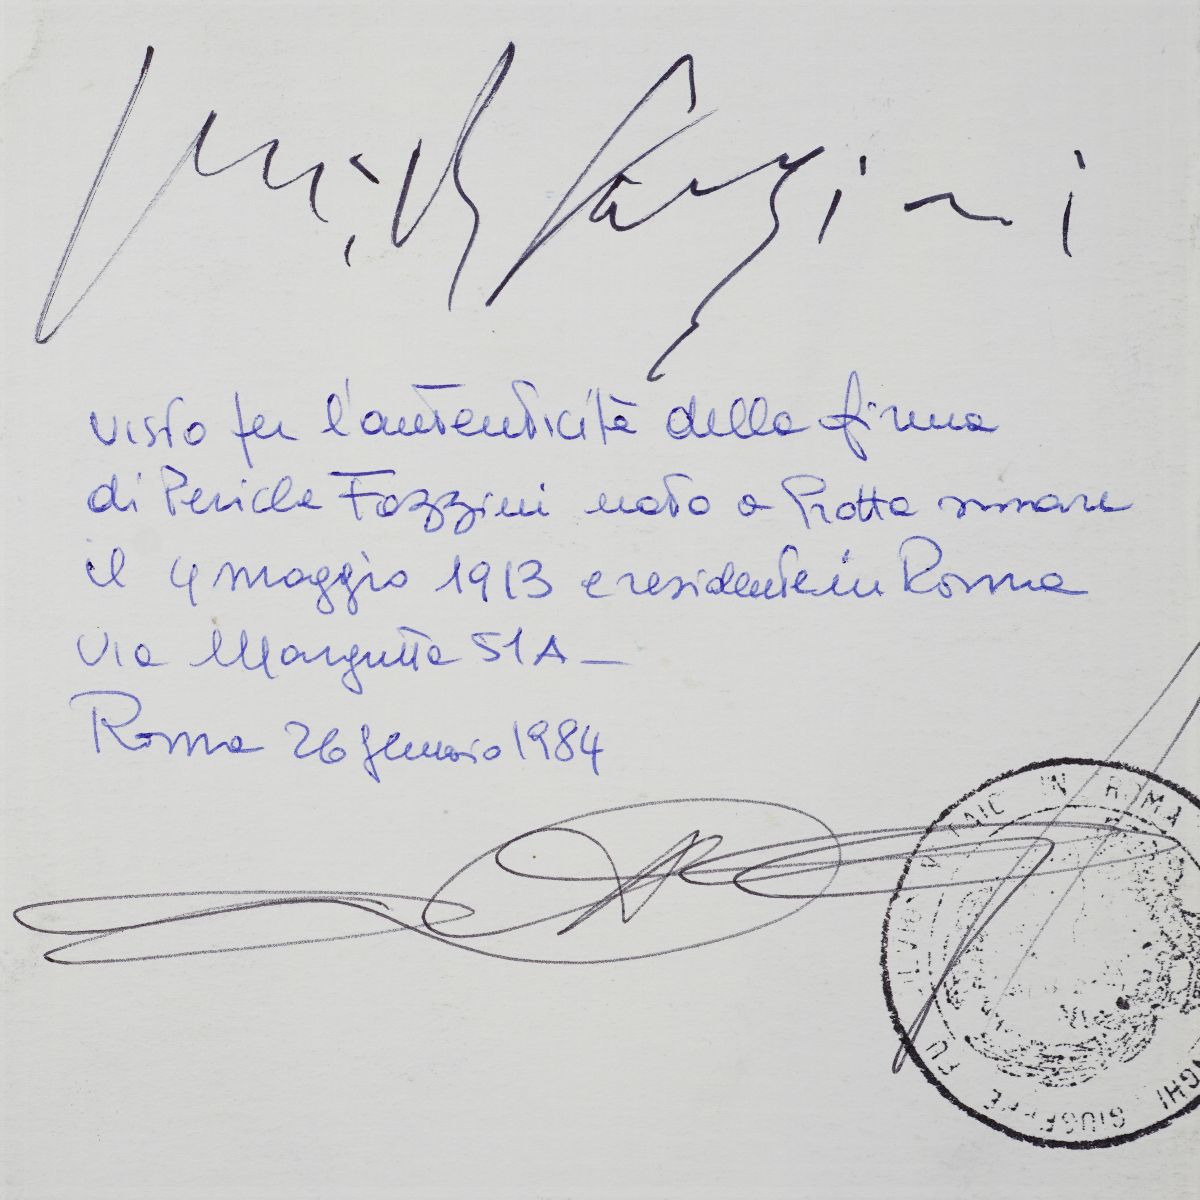 Pericle Fazzini
visto per l'autenticità della firma
di Pericle Fazzini nato a Grottammare
il 4 maggio 1913 e residente in Roma
via Margutta 51A _
Roma 26 gennaio 1984
IN ROMA
GIUSEPPE FU